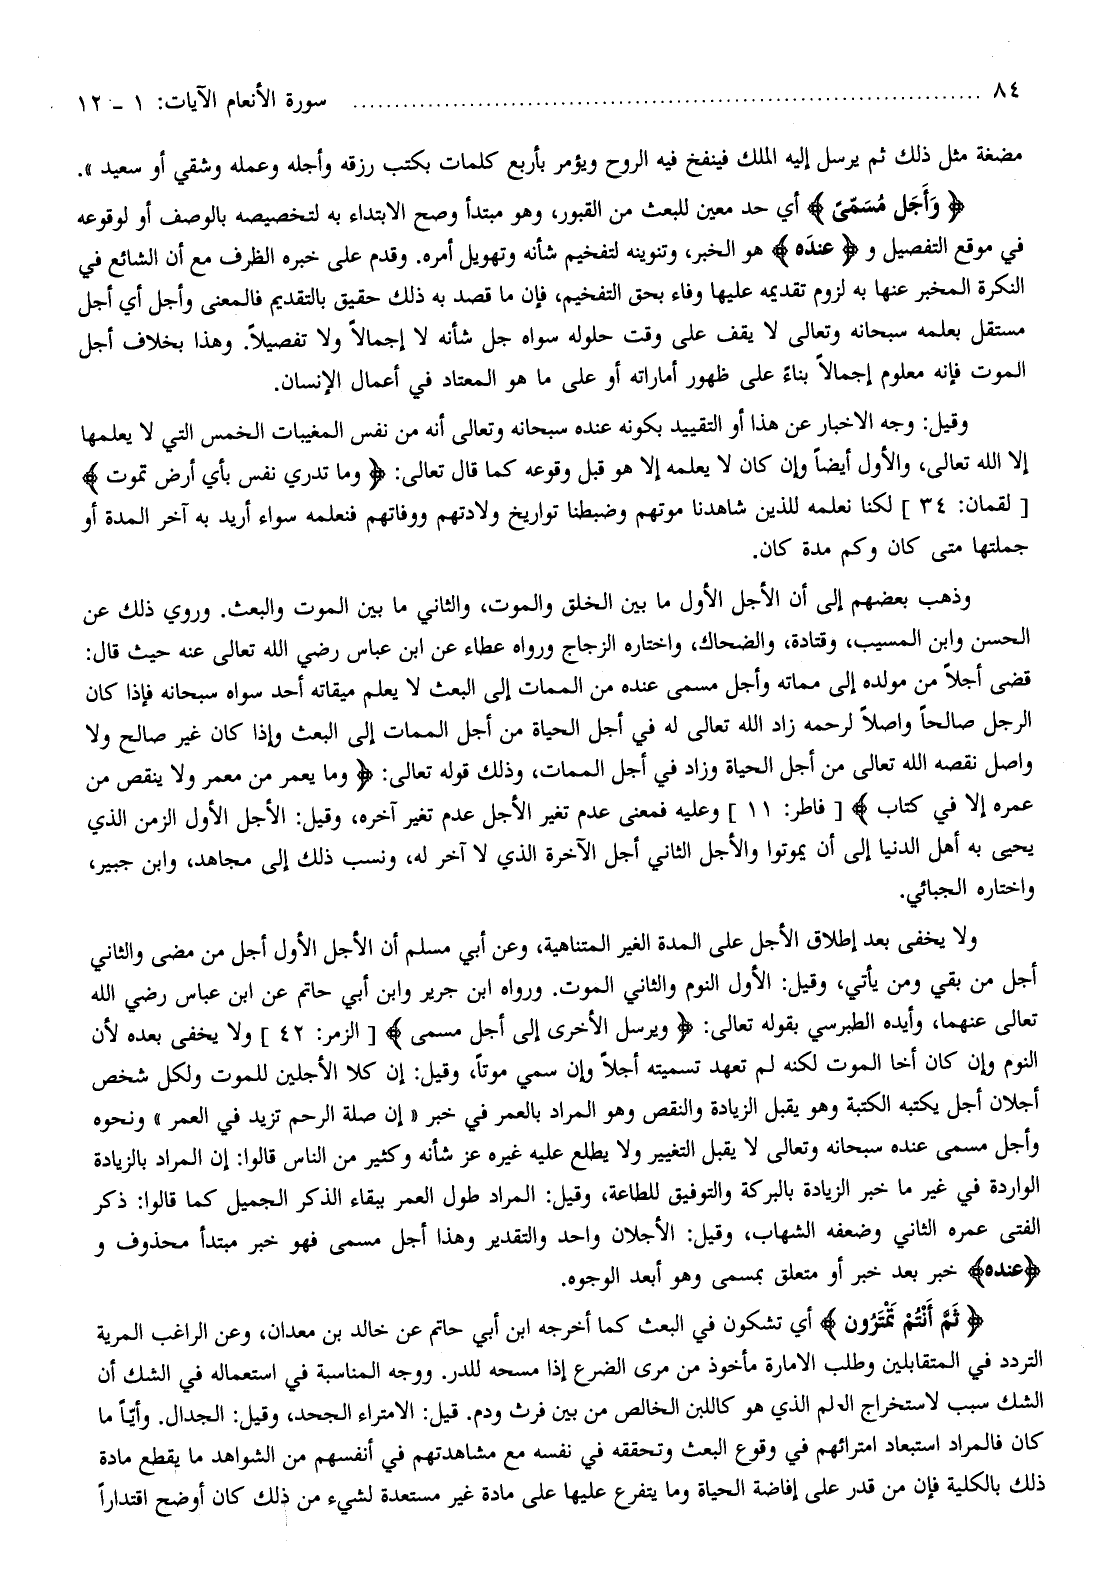 ٨٤ ........................................ سورة الأنعام الآيات: ١ - ١٢
مضغة مثل ذلك ثم يرسل إليه الملك فينفخ فيه الروح ويؤمر بأربع كلمات بكتب رزقه وأجله وعمله وشقي أو سعيد ».
﴿ وَأَجَل مُسَمّىً ﴾ أي حد معين للبعث من القبور، وهو مبتدأ وصح الابتداء به لتخصيصه بالوصف أو لوقوعه
في موقع التفصيل و ﴿ عندَه ﴾ هو الخبر، وتنوينه لتفخيم شأنه وتهويل أمره. وقدم على خبره الظرف مع أن الشائع في
النكرة المخبر عنها به لزوم تقديمه عليها وفاء بحق التفخيم، فإن ما قصد به ذلك حقيق بالتقديم فالمعنى وأجل أي أجل
مستقل بعلمه سبحانه وتعالى لا يقف على وقت حلوله سواه جل شأنه لا إجمالاً ولا تفصيلاً. وهذا بخلاف أجل
الموت فإنه معلوم إجمالاً بناءً على ظهور أماراته أو على ما هو المعتاد في أعمال الإنسان.
وقيل: وجه الاخبار عن هذا أو التقييد بكونه عنده سبحانه وتعالى أنه من نفس المغيبات الخمس التي لا يعلمها
إلا الله تعالى، والأول أيضاً وإن كان لا يعلمه إلا هو قبل وقوعه كما قال تعالى: ﴿ وما تدري نفس بأي أرض تموت ﴾
[ لقمان: ٣٤ ] لكنا نعلمه للذين شاهدنا موتهم وضبطنا تواريخ ولادتهم ووفاتهم فنعلمه سواء أريد به آخر المدة أو
جملتها متى كان وكم مدة كان.
وذهب بعضهم إلى أن الأجل الأول ما بين الخلق والموت، والثاني ما بين الموت والبعث. وروي ذلك عن
الحسن وابن المسيب، وقتادة، والضحاك، واختاره الزجاج ورواه عطاء عن ابن عباس رضي الله تعالى عنه حيث قال:
قضى أجلاً من مولده إلى مماته وأجل مسمى عنده من الممات إلى البعث لا يعلم ميقاته أحد سواه سبحانه فإذا كان
الرجل صالحاً واصلاً لرحمه زاد الله تعالى له في أجل الحياة من أجل الممات إلى البعث وإذا كان غير صالح ولا
واصل نقصه الله تعالى من أجل الحياة وزاد في أجل الممات، وذلك قوله تعالى: ﴿ وما يعمر من معمر ولا ينقص من
عمره إلا في كتاب ﴾ [ فاطر: ١١ ] وعليه فمعنى عدم تغير الأجل عدم تغير آخره، وقيل: الأجل الأول الزمن الذي
يحيى به أهل الدنيا إلى أن يموتوا والأجل الثاني أجل الآخرة الذي لا آخر له، ونسب ذلك إلى مجاهد، وابن جبير،
واختاره الجبائي.
ولا يخفى بعد إطلاق الأجل على المدة الغير المتناهية، وعن أبي مسلم أن الأجل الأول أجل من مضى والثاني
أجل من بقي ومن يأتي، وقيل: الأول النوم والثاني الموت. ورواه ابن جرير وابن أبي حاتم عن ابن عباس رضي الله
تعالى عنهما، وأيده الطبرسي بقوله تعالى: ﴿ ويرسل الأخرى إلى أجل مسمى ﴾ [ الزمر: ٤٢ ] ولا يخفى بعده لأن
النوم وإن كان أخا الموت لكنه لم تعهد تسميته أجلاً وإن سمي موتاً، وقيل: إن كلا الأجلين للموت ولكل شخص
أجلان أجل يكتبه الكتبة وهو يقبل الزيادة والنقص وهو المراد بالعمر في خبر « إن صلة الرحم تزيد في العمر » ونحوه
وأجل مسمى عنده سبحانه وتعالى لا يقبل التغيير ولا يطلع عليه غيره عز شأنه وكثير من الناس قالوا: إن المراد بالزيادة
الواردة في غير ما خبر الزيادة بالبركة والتوفيق للطاعة، وقيل: المراد طول العمر ببقاء الذكر الجميل كما قالوا: ذكر
الفتى عمره الثاني وضعفه الشهاب، وقيل: الأجلان واحد والتقدير وهذا أجل مسمى فهو خبر مبتدأ محذوف و
﴿عنده﴾ خبر بعد خبر أو متعلق بمسمى وهو أبعد الوجوه.
﴿ ثُمَّ أَنْتُمْ تَمْتَرُون ﴾ أي تشكون في البعث كما أخرجه ابن أبي حاتم عن خالد بن معدان، وعن الراغب المرية
التردد في المتقابلين وطلب الامارة مأخوذ من مرى الضرع إذا مسحه للدر. ووجه المناسبة في استعماله في الشك أن
الشك سبب لاستخراج العلم الذي هو كاللبن الخالص من بين فرث ودم. قيل: الامتراء الجحد، وقيل: الجدال. وأيّاً ما
كان فالمراد استبعاد امترائهم في وقوع البعث وتحققه في نفسه مع مشاهدتهم في أنفسهم من الشواهد ما يقطع مادة
ذلك بالكلية فإن من قدر على إفاضة الحياة وما يتفرع عليها على مادة غير مستعدة لشيء من ذلك كان أوضح اقتداراً